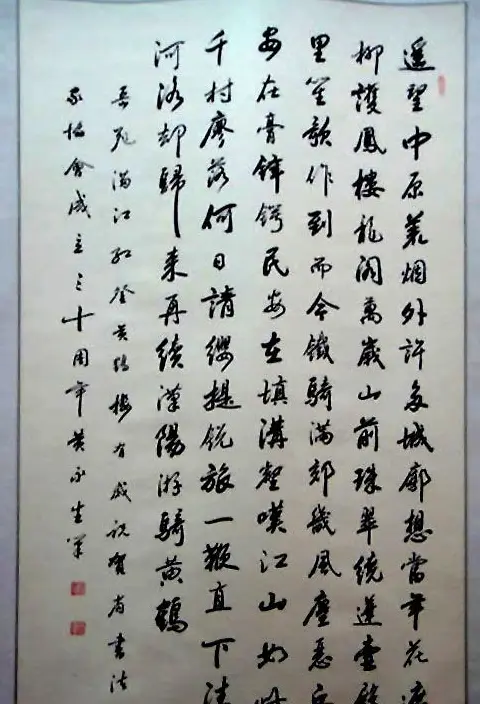 遙望中原荒烟外許多城廓想當年花遮
柳護鳳樓龍閣萬歲山前珠翠繞蓬壺殿
里笙歌作到而今鐵騎滿郊畿風塵惡兵
安在膏鋒鍔民安在填溝壑嘆江山如故
千村廖落何日請纓提銳旅一鞭直下清
河洛却歸來再續漢陽游騎黃鶴
岳飛滿江紅登黃鶴樓有感祝賀省書法
家協會成立三十周年黃永生筆